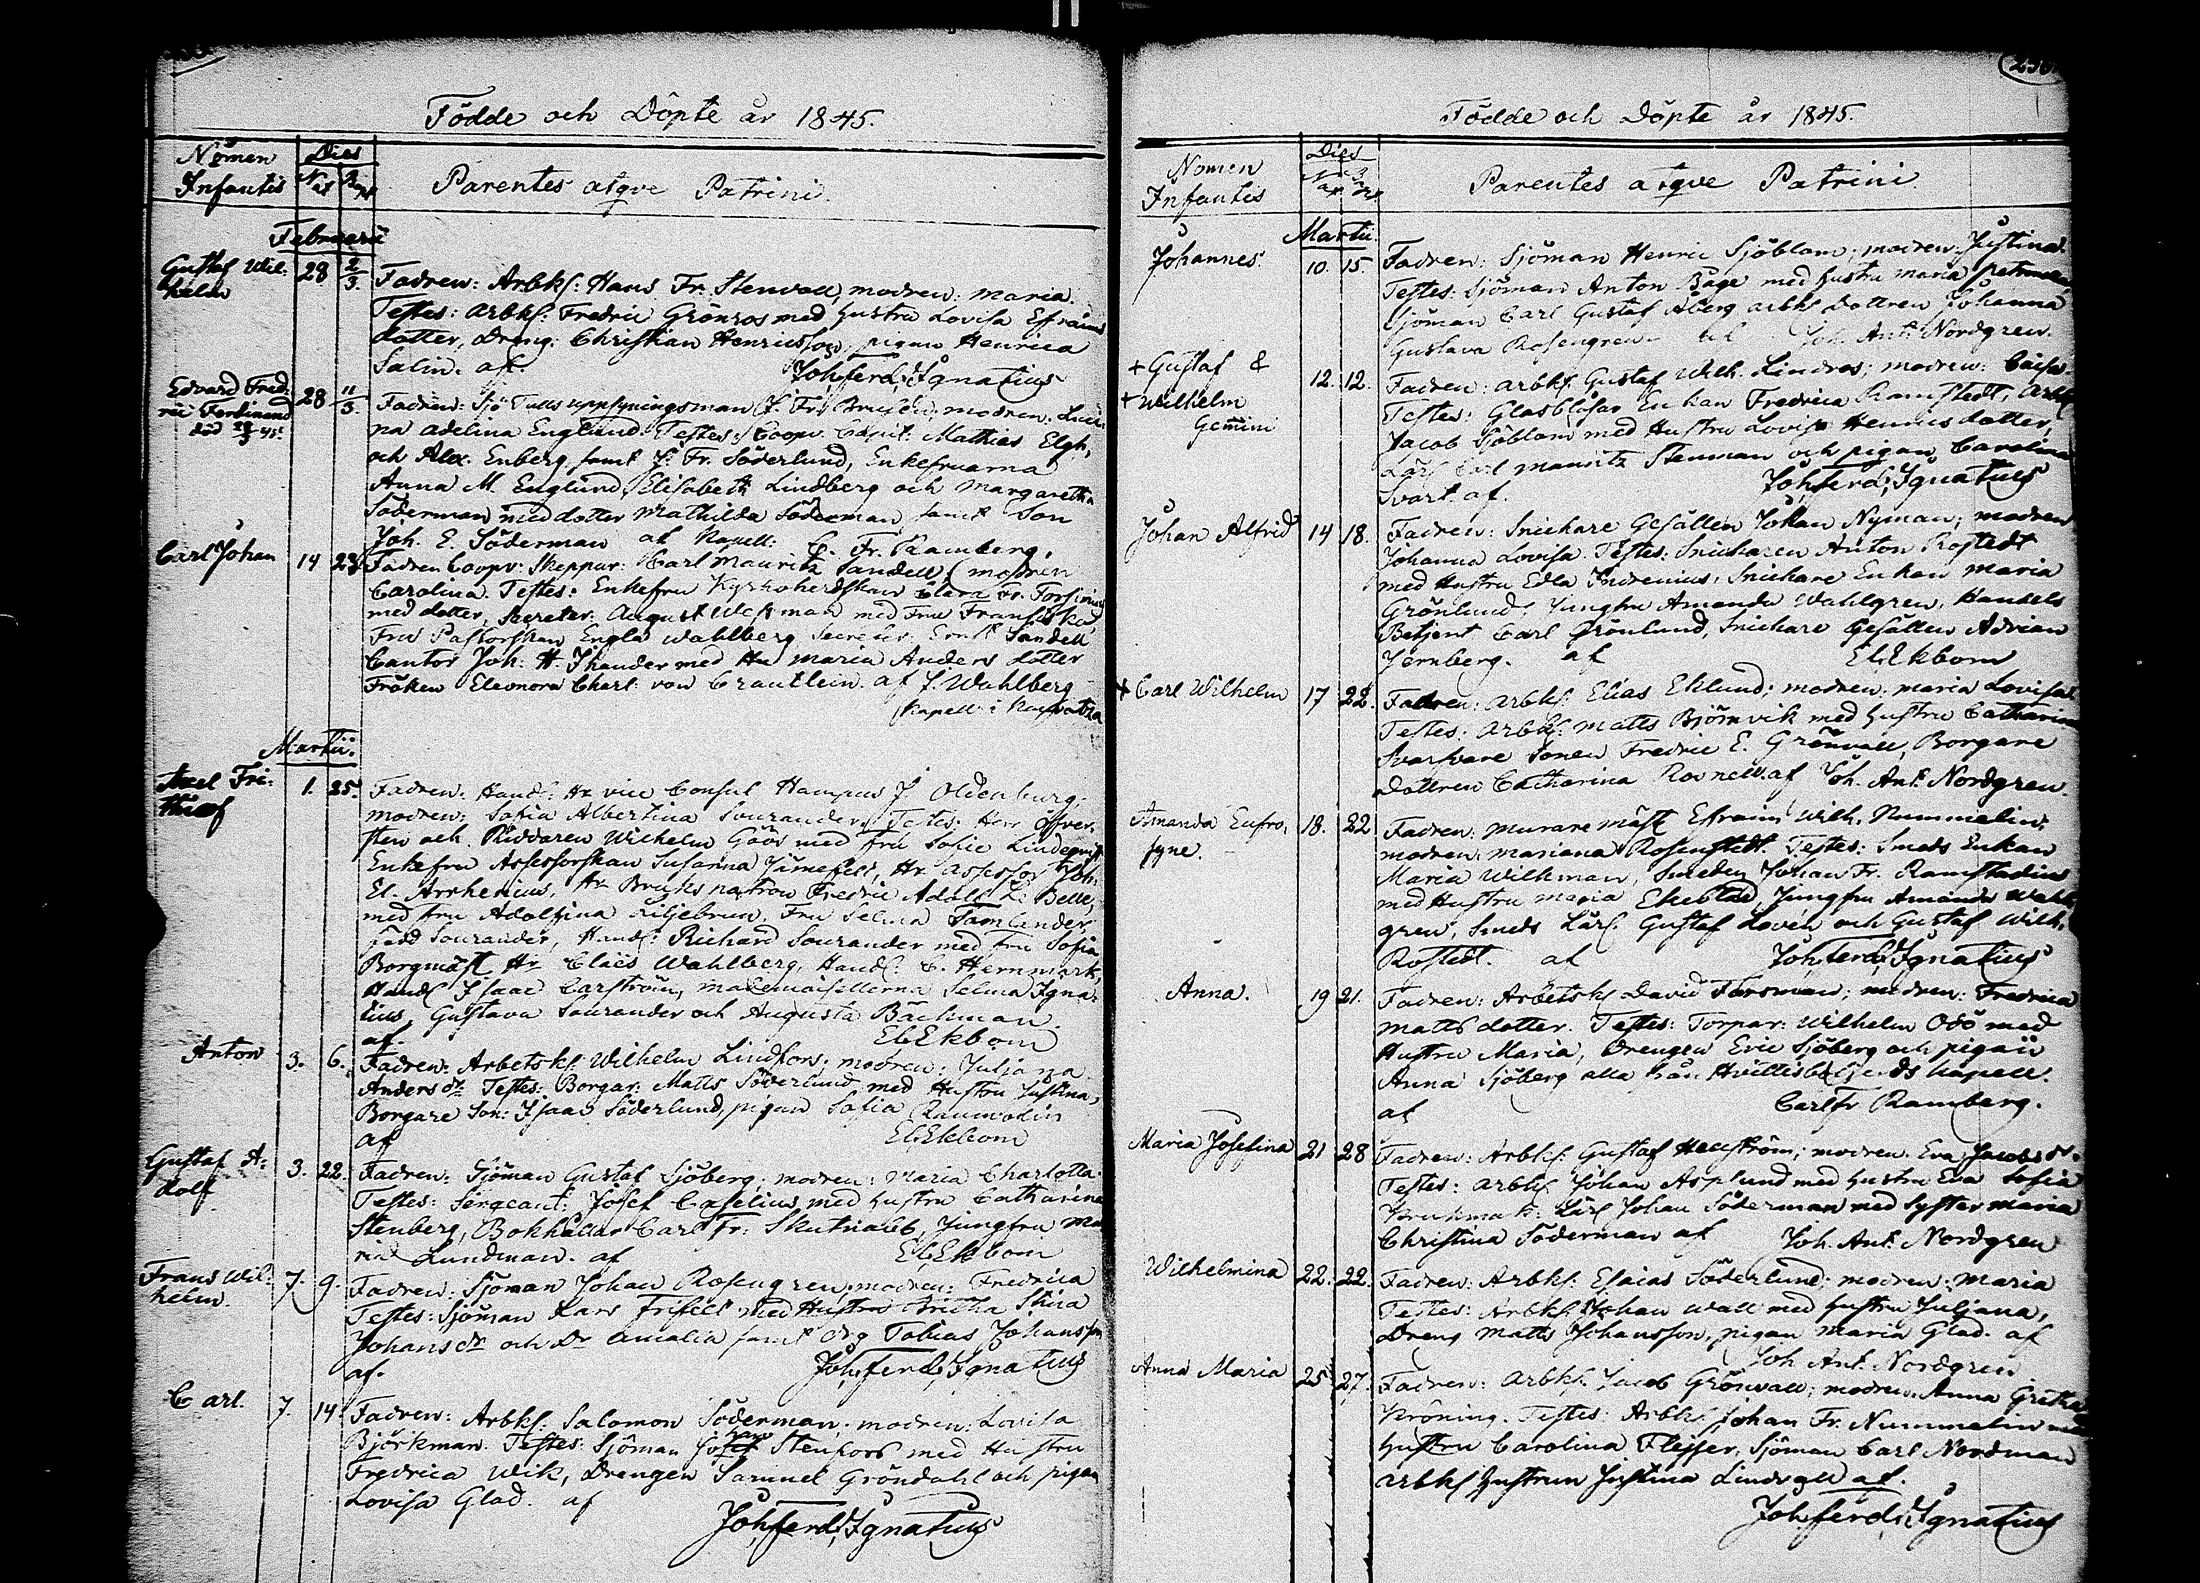 Födde och Döpte år 1845.
Nomen Infantis
Dies
Nat Bapt
Parentes atqve Patrini.
Februarii
Gustaf Wil-
helm 28 2/3.
Fadren: Arbks: Hans Fr. Stenvall, modren: Maria.
Testes: Arbks: Fredric Grönros med hustru Lovisa Efraims
dotter, Dreng: Christian Henricsson, pigan Henrica
Salin. af. Joh. Ferd. Ignatius
Edvard Fred-
ric Ferdinand
död 28 11/3
Fadren: Sjö Tulls uppsyningsman J. Fr. modren:
na Adelina Englund. Testes: Coopv. Capit: Mathias Elgh,
och Alex. Enberg samt J. Fr. Söderlund, Enkefruarna
Anna M. Englund, Elisabeth Lindberg och Margaretha
Söderman med dotter Mathilda Söderman samt Son
Joh. E. Söderman af Kapell: C. Fr. Ramberg.
Carl Johan 14 23
Fadren Coopv: Skeppar: Carl Mauritz Sandell, modren
Carolina. Testes: Enkefru Kyrkoherdskan Clara Fr. Forsman
med dotter, Secreter. August Westman med Fru Fransiska,
Fru Pastorskan Engla Wahlberg, Secreter. Ernst Sandell
Cantor Joh: H. Ihander med Hu Maria Anders dotter
Fröken Eleonora Charl: von Crautlein. af J. Wahlberg
Kapell: i
Martii.
Axel Fri-
thiof 1. 25.
Fadren: Handl: Hr vice Consul Hampus J. Oldenburg,
modren: Sofia Albertina Sourander. Testes: Herr Öfver-
sten och Riddaren Wilhelm Göös med fru Sofie Lindeqvist
Enkefru Assessorskan Susanna Järnefelt, Hr Assessor Joh.
El. Arrhenius, Hr Bruks patron Fredric Adolf Le Bell,
med fru Adolfina Liljebrun, Fru Selma Tamlander
född Sourander, Handl: Richard Sourander med fru Sofia
Borgmäst Hr Claës Wahlberg, Handl: C. Hernmark,
Handl Isaac Carström, mademoisellerna Selma Igna-
tius, Gustava Sourander och Augusta Bäckman.
af. El: Ekbom
Anton 3. 6.
Fadren: Arbetsk: Wilhelm Lindfors, modren: Juliana
Anders dr Testes: Borgar: Matts Söderlund med Hustru Justina,
Borgare Son: Isaac Söderlund, pigan Sofia Raumolin
af El: Ekbom
Gustaf A-
dolf 3. 22.
Fadren: Sjöman Gustaf Sjöberg, modren: Maria Charlotta.
Testes: Sergeant: Josef Caselius med hustru Catharina
Stenberg, Bokhållar Carl Fr. Skutnabb, Jungfru Ma-
ria Lundman. af El: Ekbom
Frans Wil-
helm. 7. 9.
Fadren: Sjöman Johan Rosengren, modren: Fredrica
Testes: Sjöman Lars Frisell med Hustru Stina
Johans dr och Dr Amalia samt drg Tobias Johansson
af. Joh. Ferd. Ignatius
Carl. 7. 14
Fadren: Arbks: Salomon Söderman, modren: Lovisa
Björkman. Testes: Sjöman Stenfors med Hustru
Fredrica Wik, Drengen Samuel Gröndahl och pigan
Lovisa Glad. af
Joh. Ferd. Ignatius
Födde och Döpte år 1845.
Nomen Infantis
Dies
Parentes atqve Patrini.
Martii
Johannes. 10. 15.
Fadren: Sjöman Henric Sjöblom, modren: Justina.
Testes: Sjöman Anton Båge med hustru Maria
Sjöman Carl Gustaf Åberg arbks dottren Johanna
Gustava Rosengren af Joh. Ant. Nordgren.
+ Gustaf &
+ Wilhelm
Gemini 12. 12.
Fadren: arbks: Gustaf Wilh. Lindros; modren: Caisa.
Testes: Glasblåsar Enkan Fredrica Ramstedt, Arbks
Jacob Sjöblom med Hustru Lovisa Henrics dotter,
Lärl Carl Mauritz Stenman och pigan Carolina
Svart. af. Joh. Ferd. Ignatius
Johan Alfrid 14 18.
Fadren: Snickare Gesällen Johan Nyman; modren
Johanna Lovisa. Testes: Snickaren Anton Rostedt
med Hustru Edla Indrenius, Snickare Enkan Maria
Grönlund, Jungfru Amanda Wahlgren, Handels
Betjent Carl Grönlund, Snickare Gesällen Adrian
Jernberg. af El: Ekbom
+ Carl Wilhelm 17 22.
Fadren: Arbks: Elias Eklund; modren: Maria Lovisa.
Testes: Arbks: Matts Björnvik med hustru Catharina
Svarfvare Sonen Fredric E. Grönvall, Borgare
Dottren Catharina Rosnell. af Joh. Ant. Nordgren.
Amanda Eufro-
syne. 18. 22
Fadren: Murare mäst Efraim Wilh. Nummelin,
modren: Mariana Rosenstedt. Testes: Smeds Enkan
Maria Wilkman, Smeden Johan Fr. Ramstadius
med Hustru Maria Ekeblad, Jungfru Amanda Wahl-
gren, Smeds Lärl. Gustaf Lovén och Gustaf Wilh.
Rostedt. af Joh. Ferd. Ignatius
Anna. 19 21.
Fadren: Arbetsk David Forsman; modren: Fredrica
Matts dotter. Testes: Torpar: Wilhelm Odö med
Hustru Maria, Drengen Eric Sjöberg och pigan
Anna Sjöberg alla från Hvittisbofjerds kapell.
af Carl Fr Ramberg.
Maria Josefina 21 28
Fadren: Arbks: Gustaf Hellström; modren: Eva Jacobs dr.
Testes: arbks Johan Asplund med hustru Eva Sofia
Lärl Johan Söderman med syster Maria
Christina Söderman af Joh. Ant. Nordgren
Wilhelmina 22. 22.
Fadren: Arbks: Esaias Söderlund; modren: Maria
Testes: Arbks: Johan Wall med hustru Juljana,
Dreng Matts Johansson, pigan Maria Glad. af
Joh Ant. Nordgren
Anna Maria 25 27.
Fadren: Arbks. Jacob Grönvall; modren: Anna Greta
Kröning. Testes: Arbks Johan Fr. Nummelin med
hustru Carolina Flejser, Sjöman Carl Nordman
arbks hustrun Justina Lindvall af.
Joh. Ferd. Ignatius